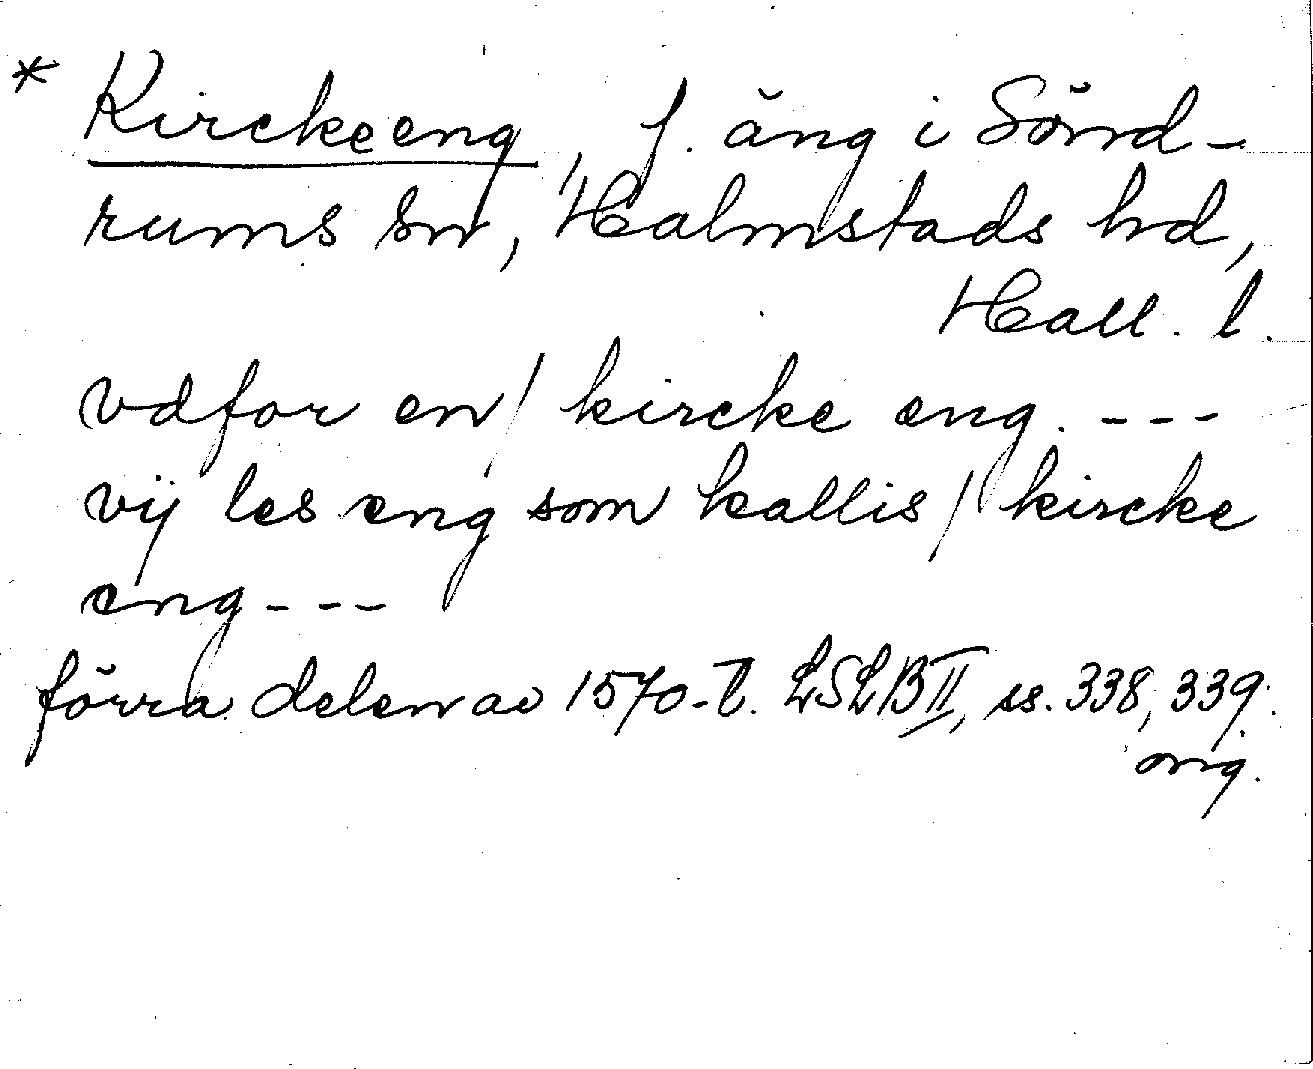 * Kirckeeng, f. äng i Sönd-
rums sn, Halmstads hd,
Hall. l.
vdfor en / kircke eng. ---
vij les eng som kallis / kircke
eng ---
förra delen av 1570-t. LSLB II, ss. 338, 339.
orig.